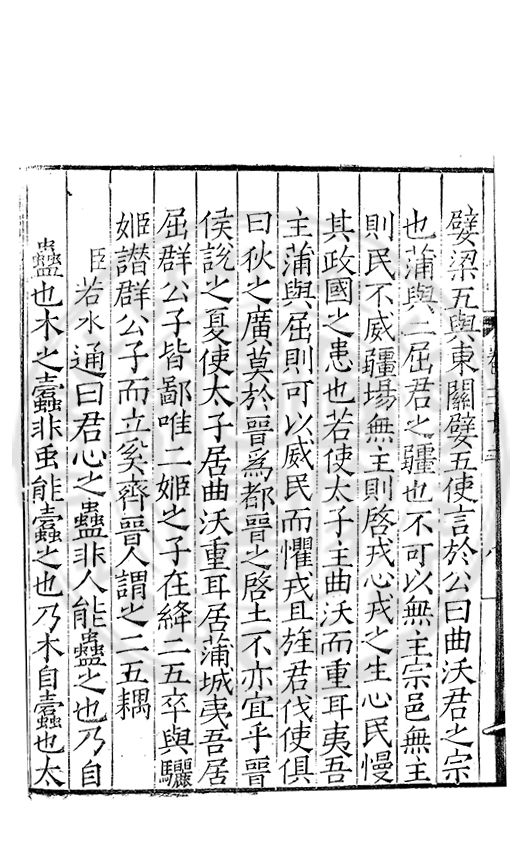 嬖梁五與東關嬖五使言於公曰曲沃君之宗
也蒲與二屈君之疆也不可以無主宗邑無主
則民不威疆埸無主則啓戎心戎之生心民慢
其政國之患也若使太子主曲沃而重耳夷吾
主蒲與屈則可以威民而懼戎且旌君伐使俱
曰狄之廣莫於晉爲都晉之啓土不亦宜乎晉
侯說之夏使太子居曲沃重耳居蒲城夷吾居
屈群公子皆鄙唯二姬之子在絳二五卒與驪
姬譖群公子而立奚齊晉人謂之二五耦
臣若水通曰君心之蠱非人能蠱之也乃自
蠱也木之蠧非虫能蠧之也乃木自蠧也太